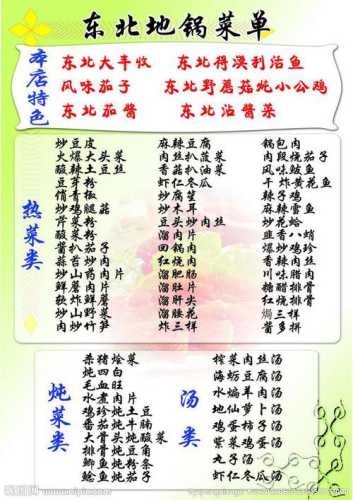 东北地锅菜单
本店特色
东北大丰收 东北得漠利活鱼
风味茄子 东北野蘑菇炖小公鸡
东北茄酱 东北沾酱菜
热菜类
炒豆皮
火爆大头菜
酸辣土豆丝
豆芽粉
俏青椒
炒鸡腿菇
芹菜粉
酸菜粉
酱扒茄子
蒜苔炒肉
炒山药肉片
炸鲜蘑
软炸鲜蘑
炒山野菜
肉炒竹笋
麻辣豆腐
肉丝扒菠菜
香菇扒油菜
虾仁冬瓜
炒腐竹
炒木耳
豆头炒肉丝
溜肉片
回锅肉
红烧肉
溜肥肠
溜肚片
溜肝尖
溜腰花
炸三样
锅包肉
肉段烧茄子
风味鲅鱼
干炸黄花鱼
辣子鸡
麻辣雷鱼
炒花蛤
韭香八蛸
爆炒鸡珍
香辣肉丝
川味腊肉
糖醋排骨
红烧排骨
焗三样
酱多拼
炖菜类
杀猪烩菜
炖四白
毛血旺
水煮肉片
鸡珍炖土豆
番茄炖牛腩
大骨头炖酸菜
排骨炖豆角
鲫鱼炖粉条
鲶鱼炖茄子
汤类
榨菜肉丝汤
海蛎豆腐汤
水煸羊肉汤
地仙萝卜汤
鸡蛋柿子汤
紫菜鸡蛋汤
丸子汤
虾仁冬瓜汤